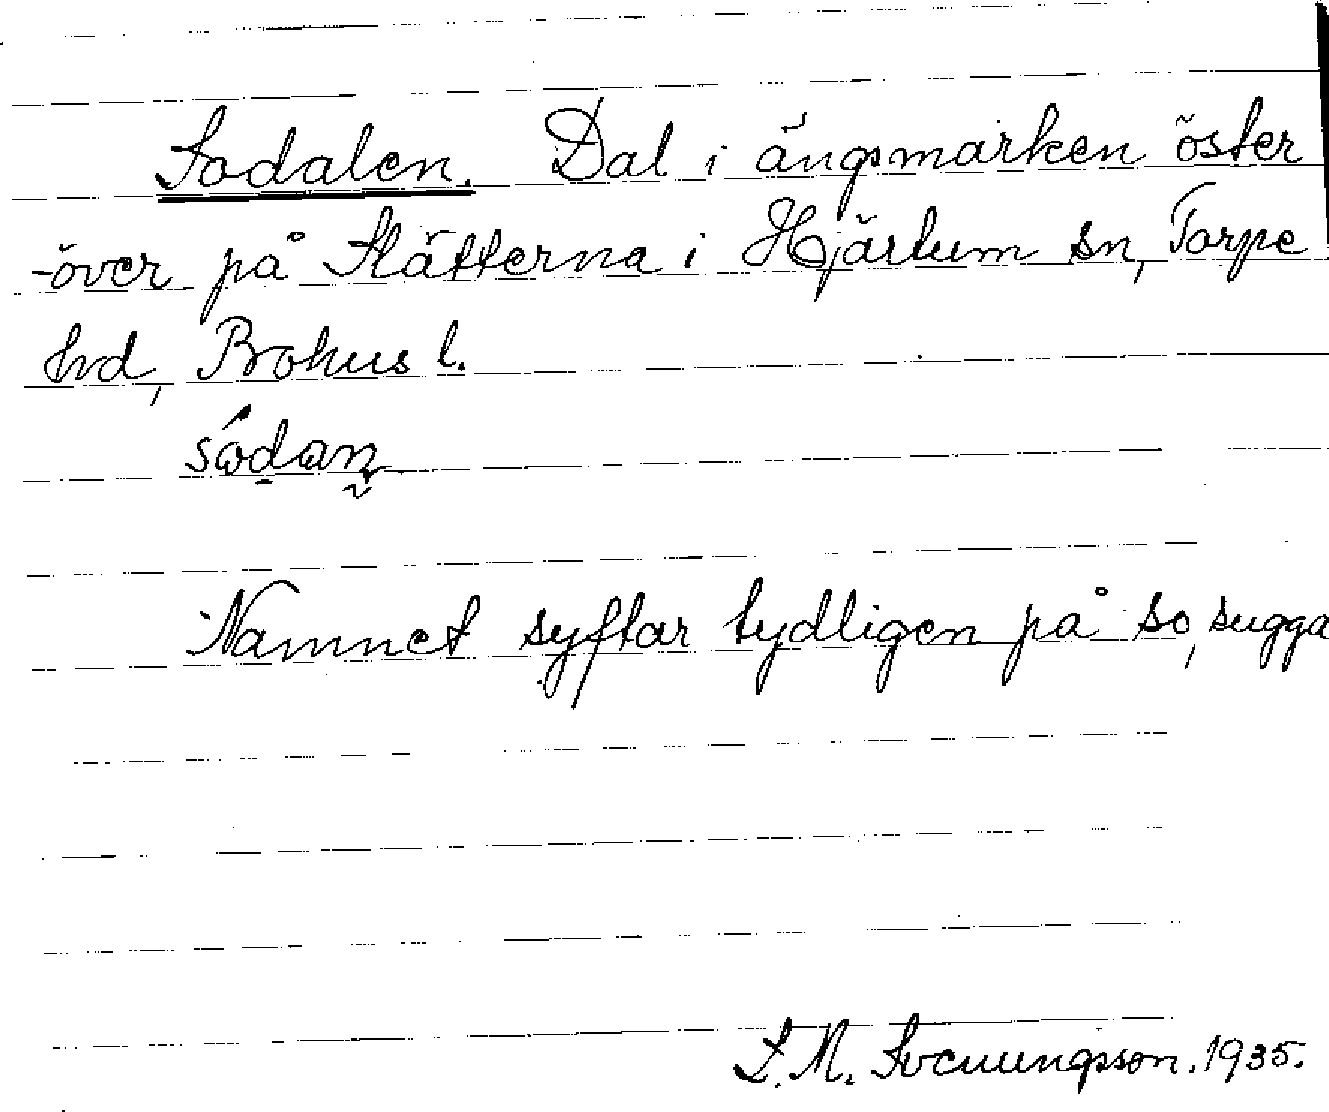 Sodalen. Dal i ängsmarken öster
-över på Slätterna i Hjärtum sn, Torpe
hrd, Bohus l.
sódan
Namnet syftar tydligen på so, sugga
S. M. Svenungsson. 1935.